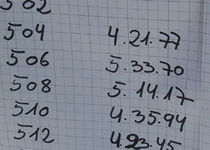 502
504 4.21.77
506 5.33.70
508 5.14.17
510 4.35.94
512 4.23.45